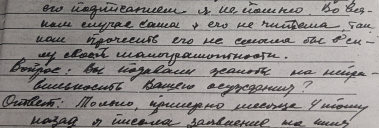 его подписанием я не помню Во вся-
ком случае сама я его не читала, так
как прочесть его не смогла бы в си-
лу своей малограмотности.
Вопрос: Вы подавали жалобы на непра-
вильность Вашего осуждения?
Ответ: Только, примерно месяца 4 тому
назад я писала заявление на имя